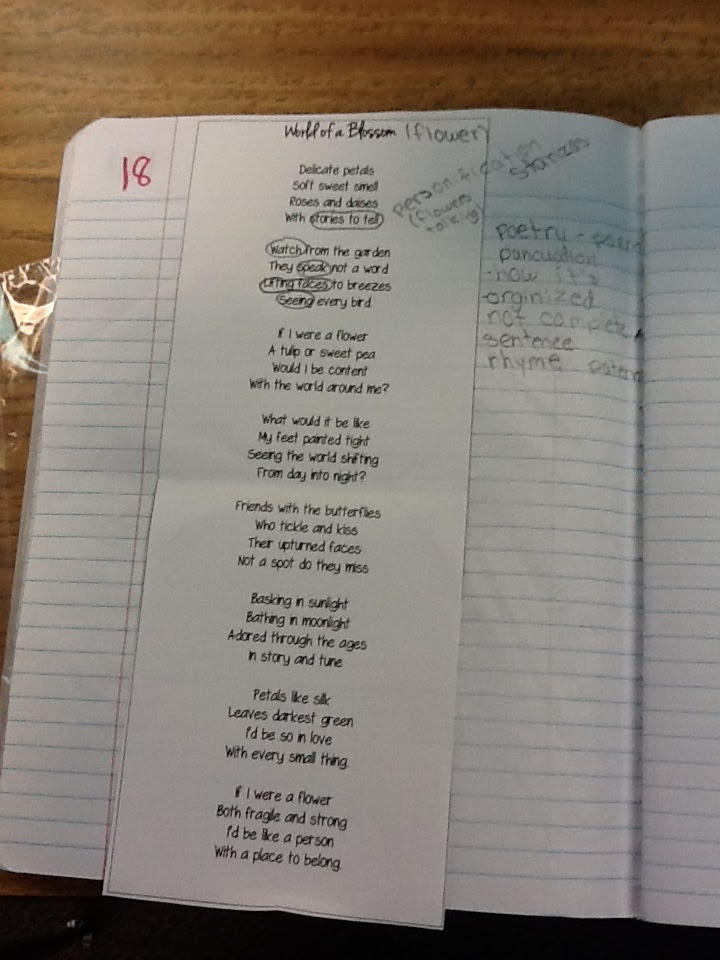 18
World of a Blossom (flower)
Delicate petals
Soft sweet smell
Roses and daises
With stories to tell
Watch from the garden
They speak not a word
Lifting faces to breezes
Seeing every bird.
If I were a flower
A tulip or sweet pea
Would I be content
With the world around me?
What would it be like
My feet painted tight
Seeing the world shifting
From day into night?
Friends with the butterflies
Who tickle and kiss
Their upturned faces
Not a spot do they miss
Basking in sunlight
Bathing in moonlight
Adored through the ages
In story and tune
Petals like silk
Leaves darkest green
I'd be so in love
With every small thing.
If I were a flower
Both fragile and strong
I'd be like a person
With a place to belong.
personification
stanzas
(flowers
talking)
poetry -
puncuation
-how it's
orginized
not complete
sentence
rhyme patern